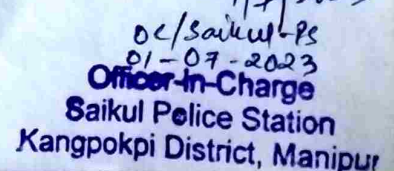 OC/Saikul-PS
01-07-2023
Officer-In-Charge
Saikul Police Station
Kangpokpi District, Manipur